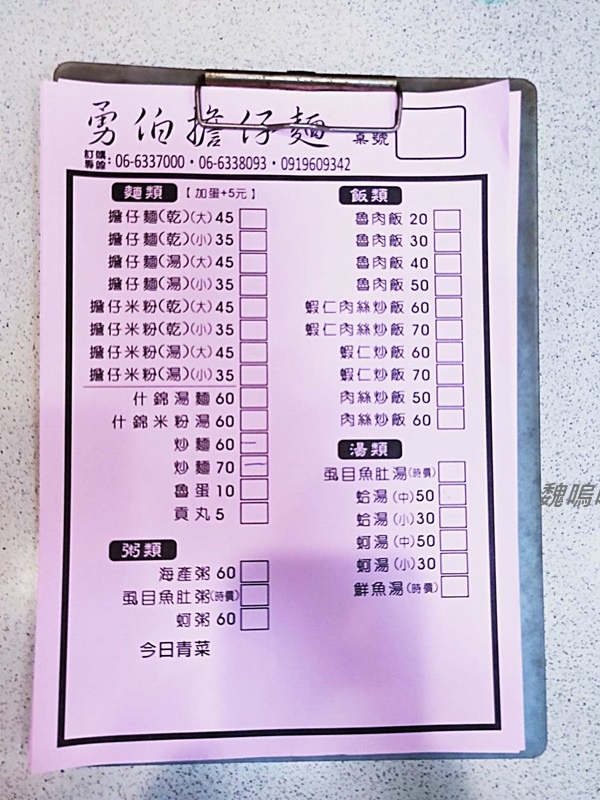 勇伯擔仔麵 桌號
訂購專線: 06-6337000・06-6338093・0919609342
麵類 【加蛋+5元】
擔仔麵(乾)(大) 45
擔仔麵(乾)(小) 35
擔仔麵(湯)(大) 45
擔仔麵(湯)(小) 35
擔仔米粉(乾)(大) 45
擔仔米粉(乾)(小) 35
擔仔米粉(湯)(大) 45
擔仔米粉(湯)(小) 35
什錦湯麵 60
什錦米粉湯 60
炒麵 60
炒麵 70
魯蛋 10
貢丸 5
粥類
海產粥 60
虱目魚肚粥(時價)
蚵粥 60
今日青菜
飯類
魯肉飯 20
魯肉飯 30
魯肉飯 40
魯肉飯 50
蝦仁肉絲炒飯 60
蝦仁肉絲炒飯 70
蝦仁炒飯 60
蝦仁炒飯 70
肉絲炒飯 50
肉絲炒飯 60
湯類
虱目魚肚湯(時價)
蛤湯(中) 50
蛤湯(小) 30
蚵湯(中) 50
蚵湯(小) 30
鮮魚湯(時價)
魏嗚